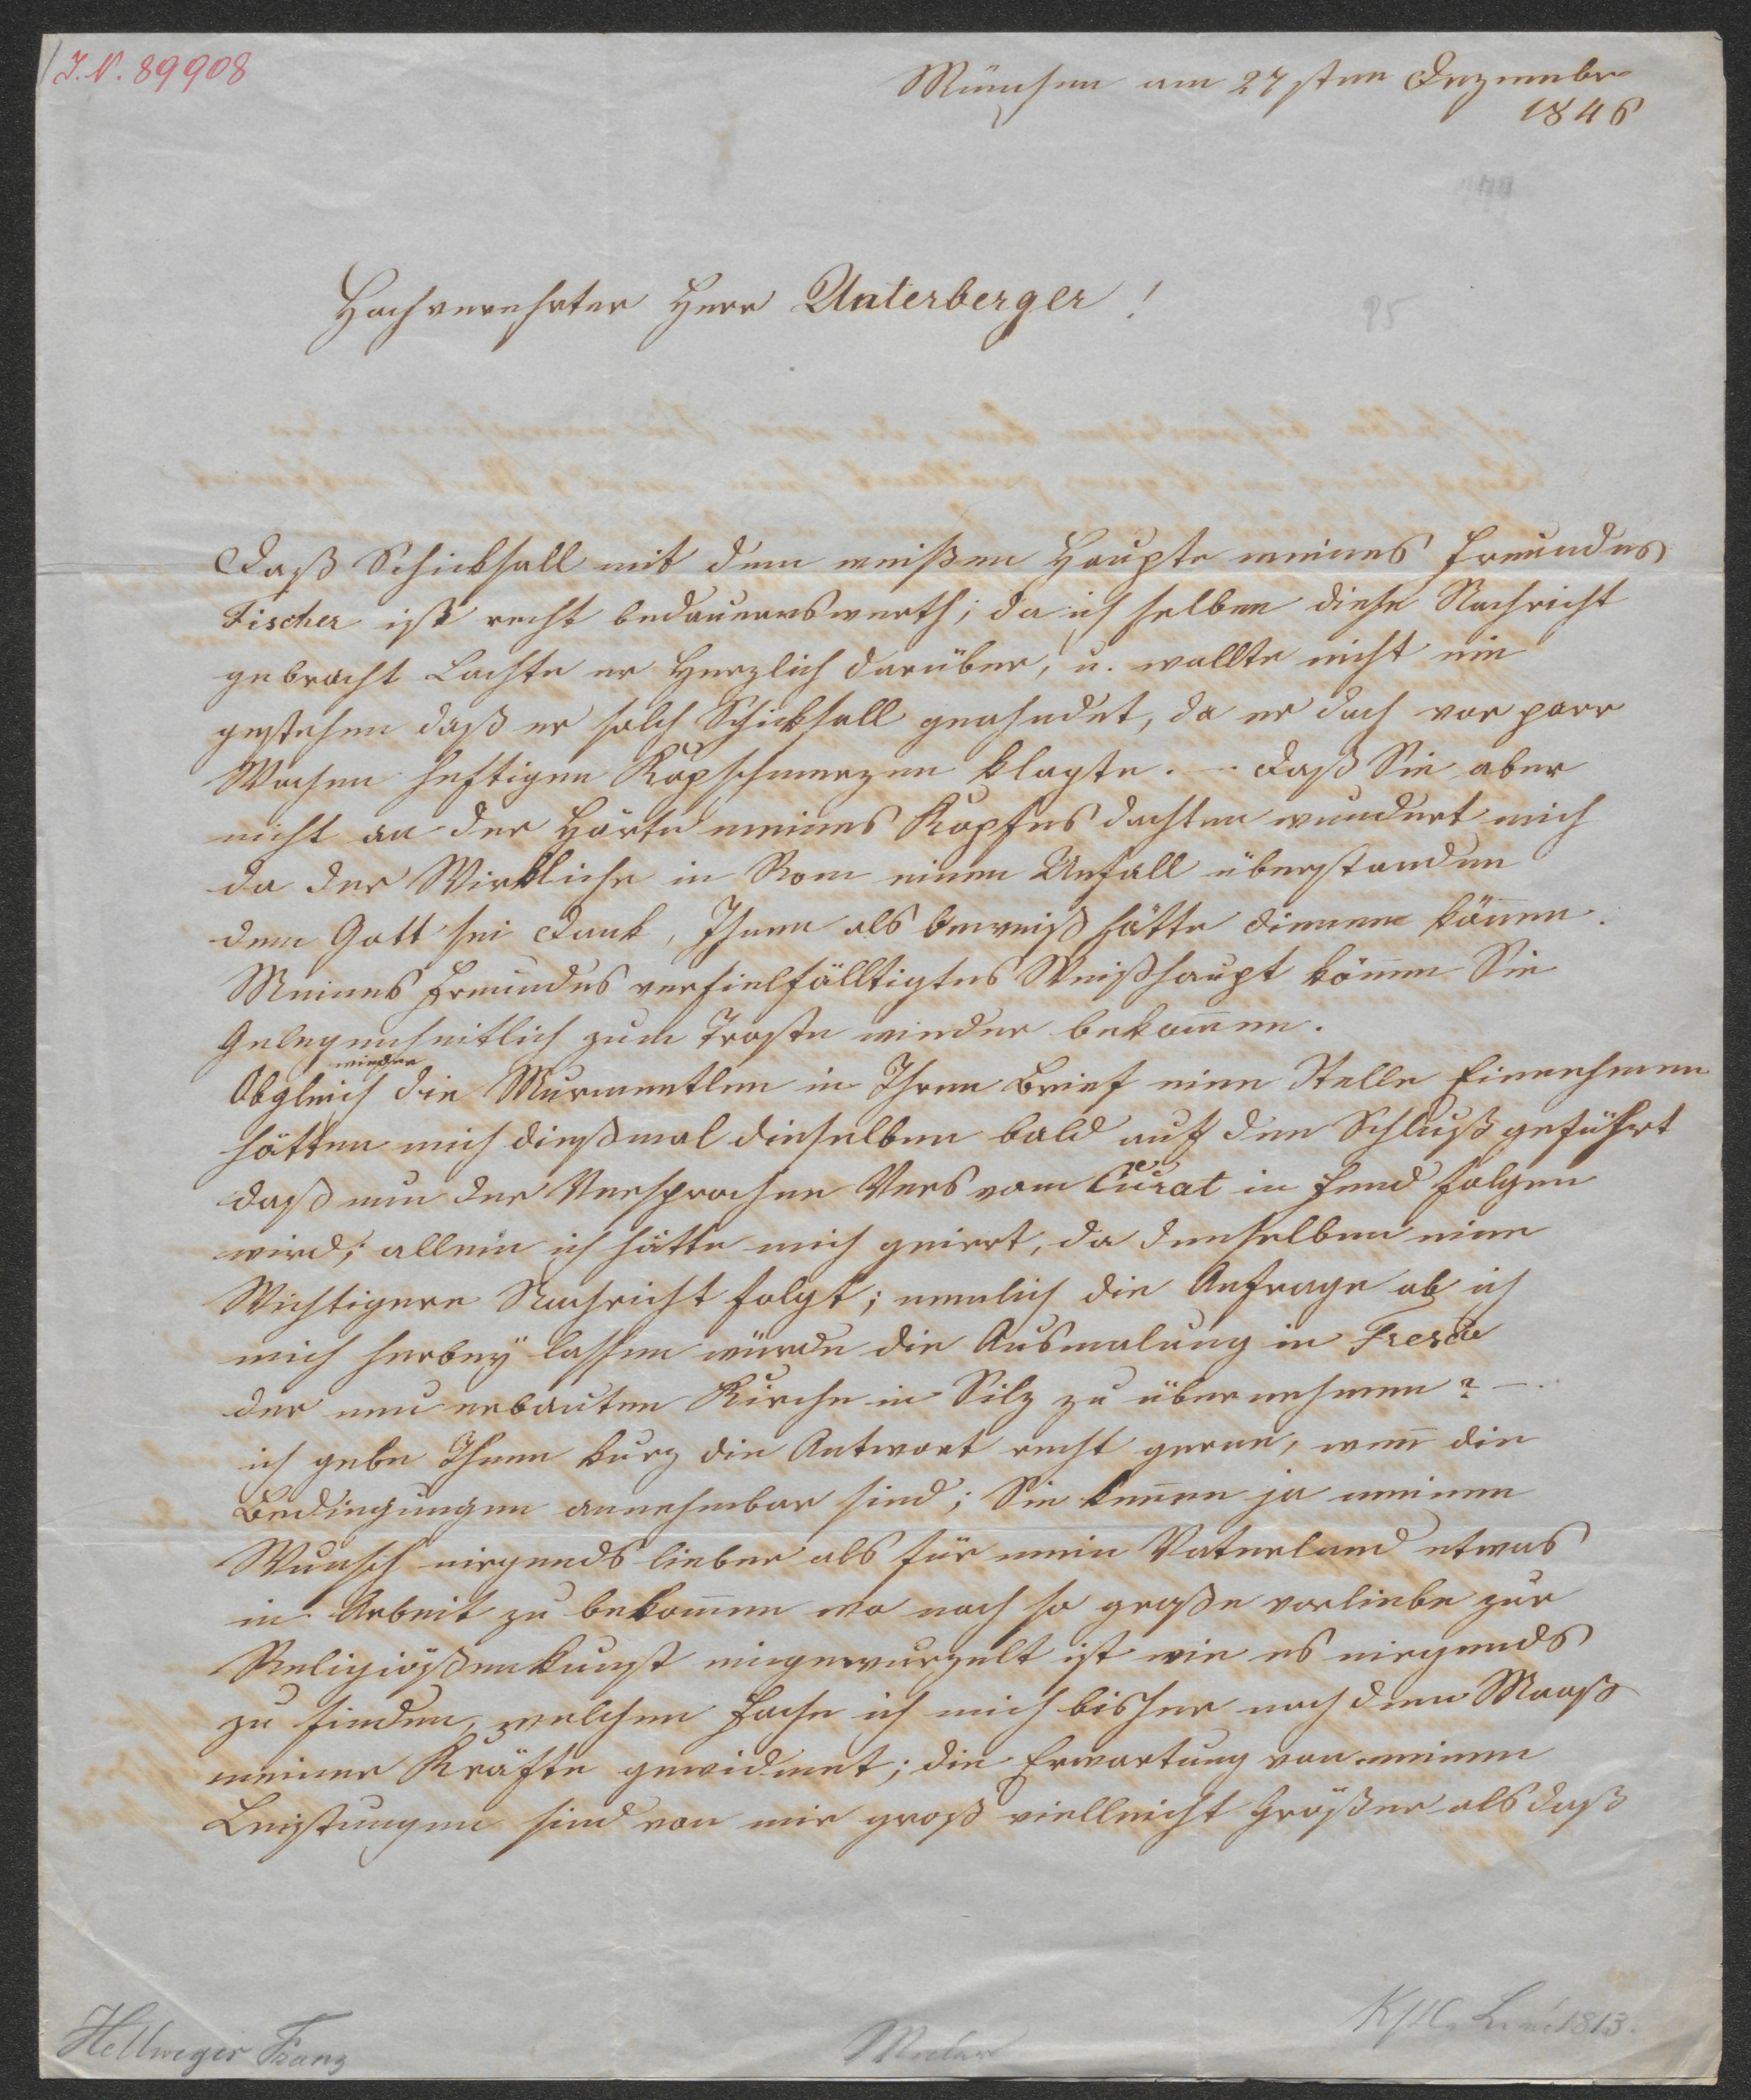 I. N. 89908
München am 27sten Dezember
1846
95
Hochverehrter Herr Unterberger!
Daß Schicksall mit dem weißen Haupte meines Freundes
Fischer ist recht bedauernswerth; da ich selben diese Nachricht
gebracht Lachte er Herzlich darüber, u. wollte nicht ein
gestehen daß er solch Schicksall geahndet, da er doch vor parr
Wochen heftigen Kopschmerzen klagte. – daß Sie aber
nicht an der Härte meines Kopfes dachten wundert mich
da der Wirkliche in Rom einen Unfall überstanden
dem Gott sei Dank, Ihnen als beweiß hätte dienen können.
Meines Freundes verfielfälltigtes Weißhaupt können Sie
Gelegenheitlich zum Troste wieder bekommen.
wieder
Obgleich die Murmentlen in Ihren Brief eine Stelle Einnehmen
hätten mich dießmal dieselben bald auf den Schluß geführt
daß nun der Versprochene Vers vom Curat in Fend folgen
wird; allein ich hätte mich geiert, da denselben eine
Wichtigere Nachricht folgt; nemlich die Anfrage ob ich
mich herbey lassen würde die Ausmalung in Fresco
der neu erbauten Kirche in Silz zu übernehmen? –.
ich gebe Ihnen kurz die Antwort recht gerne, wen̄ die
Bedingungen annehmbar sind; Sie kennen ja meinen
Wunsch nirgends lieber als für mein Vaterland etwas
in Arbeit zu bekom̄en wo noch so große vorliebe zur
Religiößenkunst eingewurzelt ist wie es nirgends
zu finden, welchen Fache ich mich bisher nach dem Maaß
meiner Kräfte gewidmet; die Erwartung von meinen
Leistungen sind von mir groß vielleicht Größer als daß
Hellweger Franz
Maler